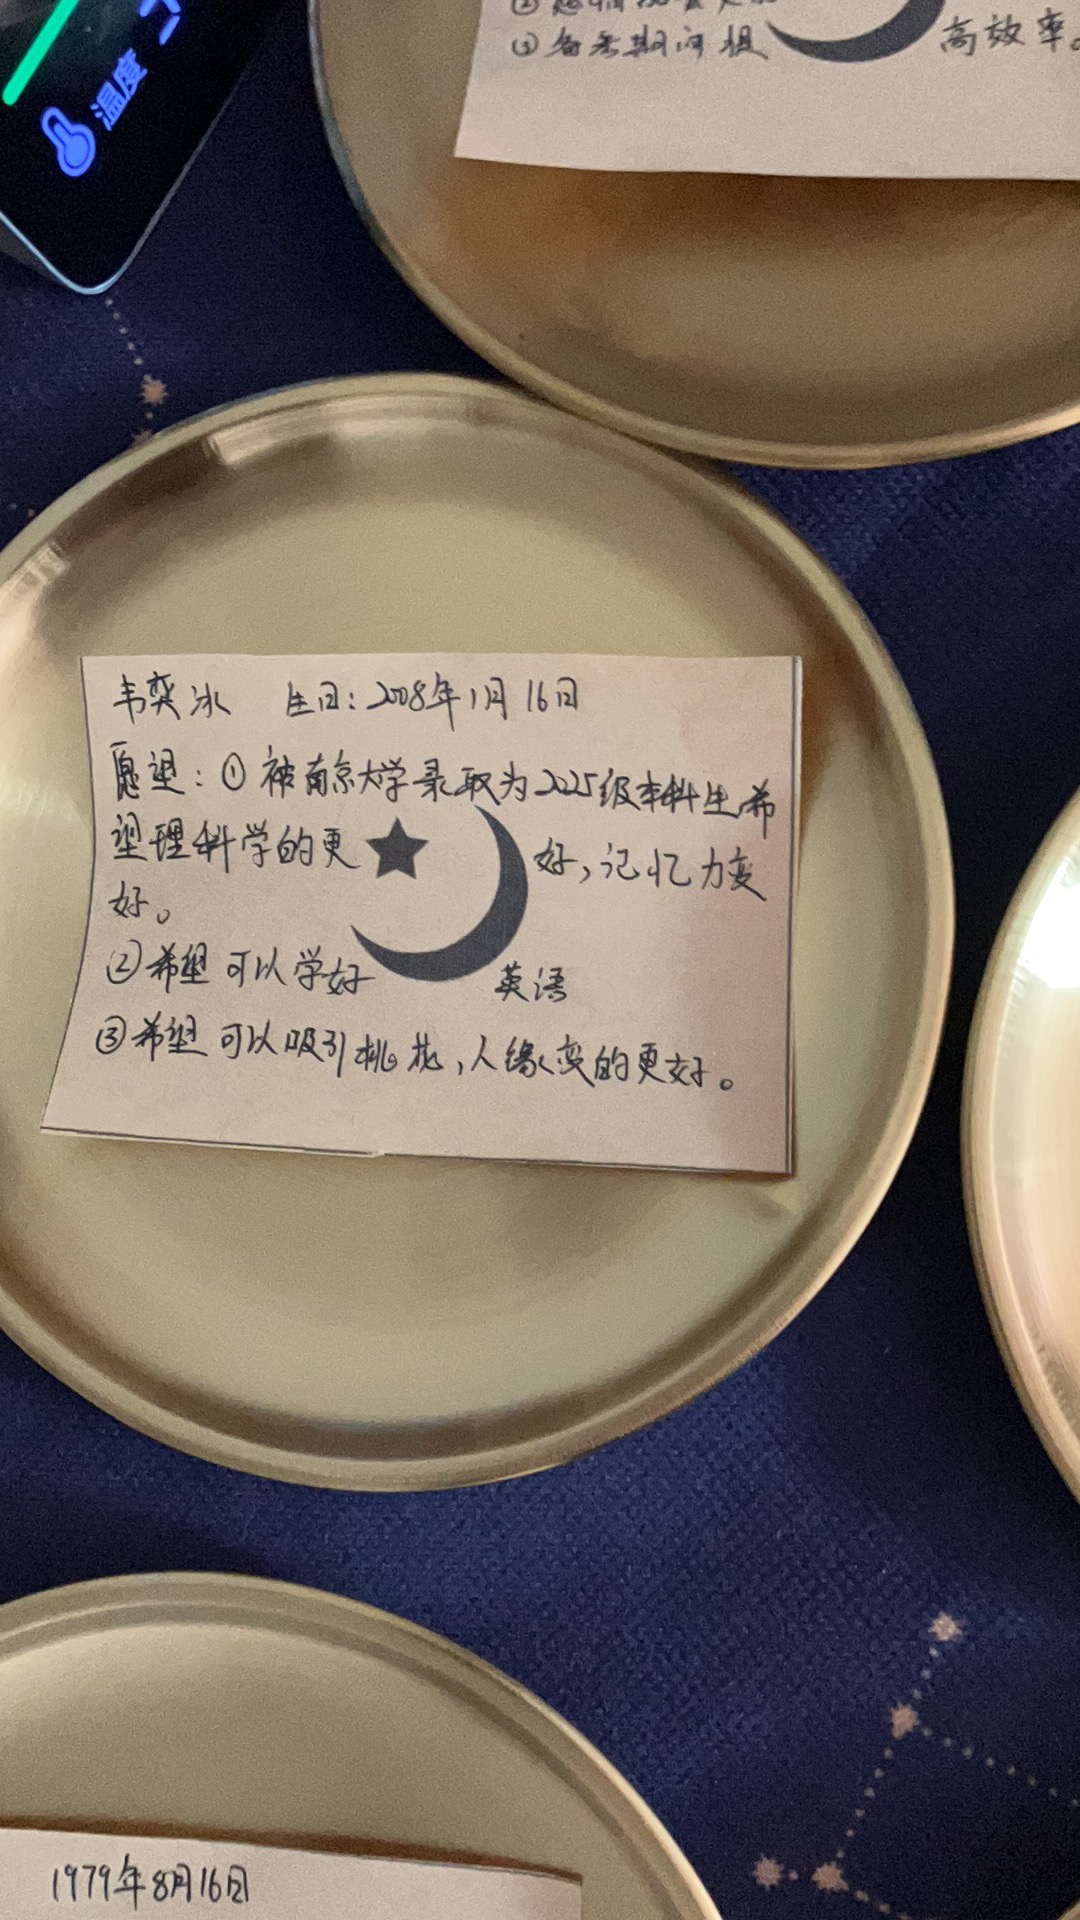 温度
③备考期间
高效率。
韦奕冰 生日:2008年1月16日
愿望:①被南京大学录取为2025级本科生希
望理科学的更好,记忆力变
好。
②希望可以学好英语
③希望可以吸引桃花,人缘变的更好。
1979年8月16日